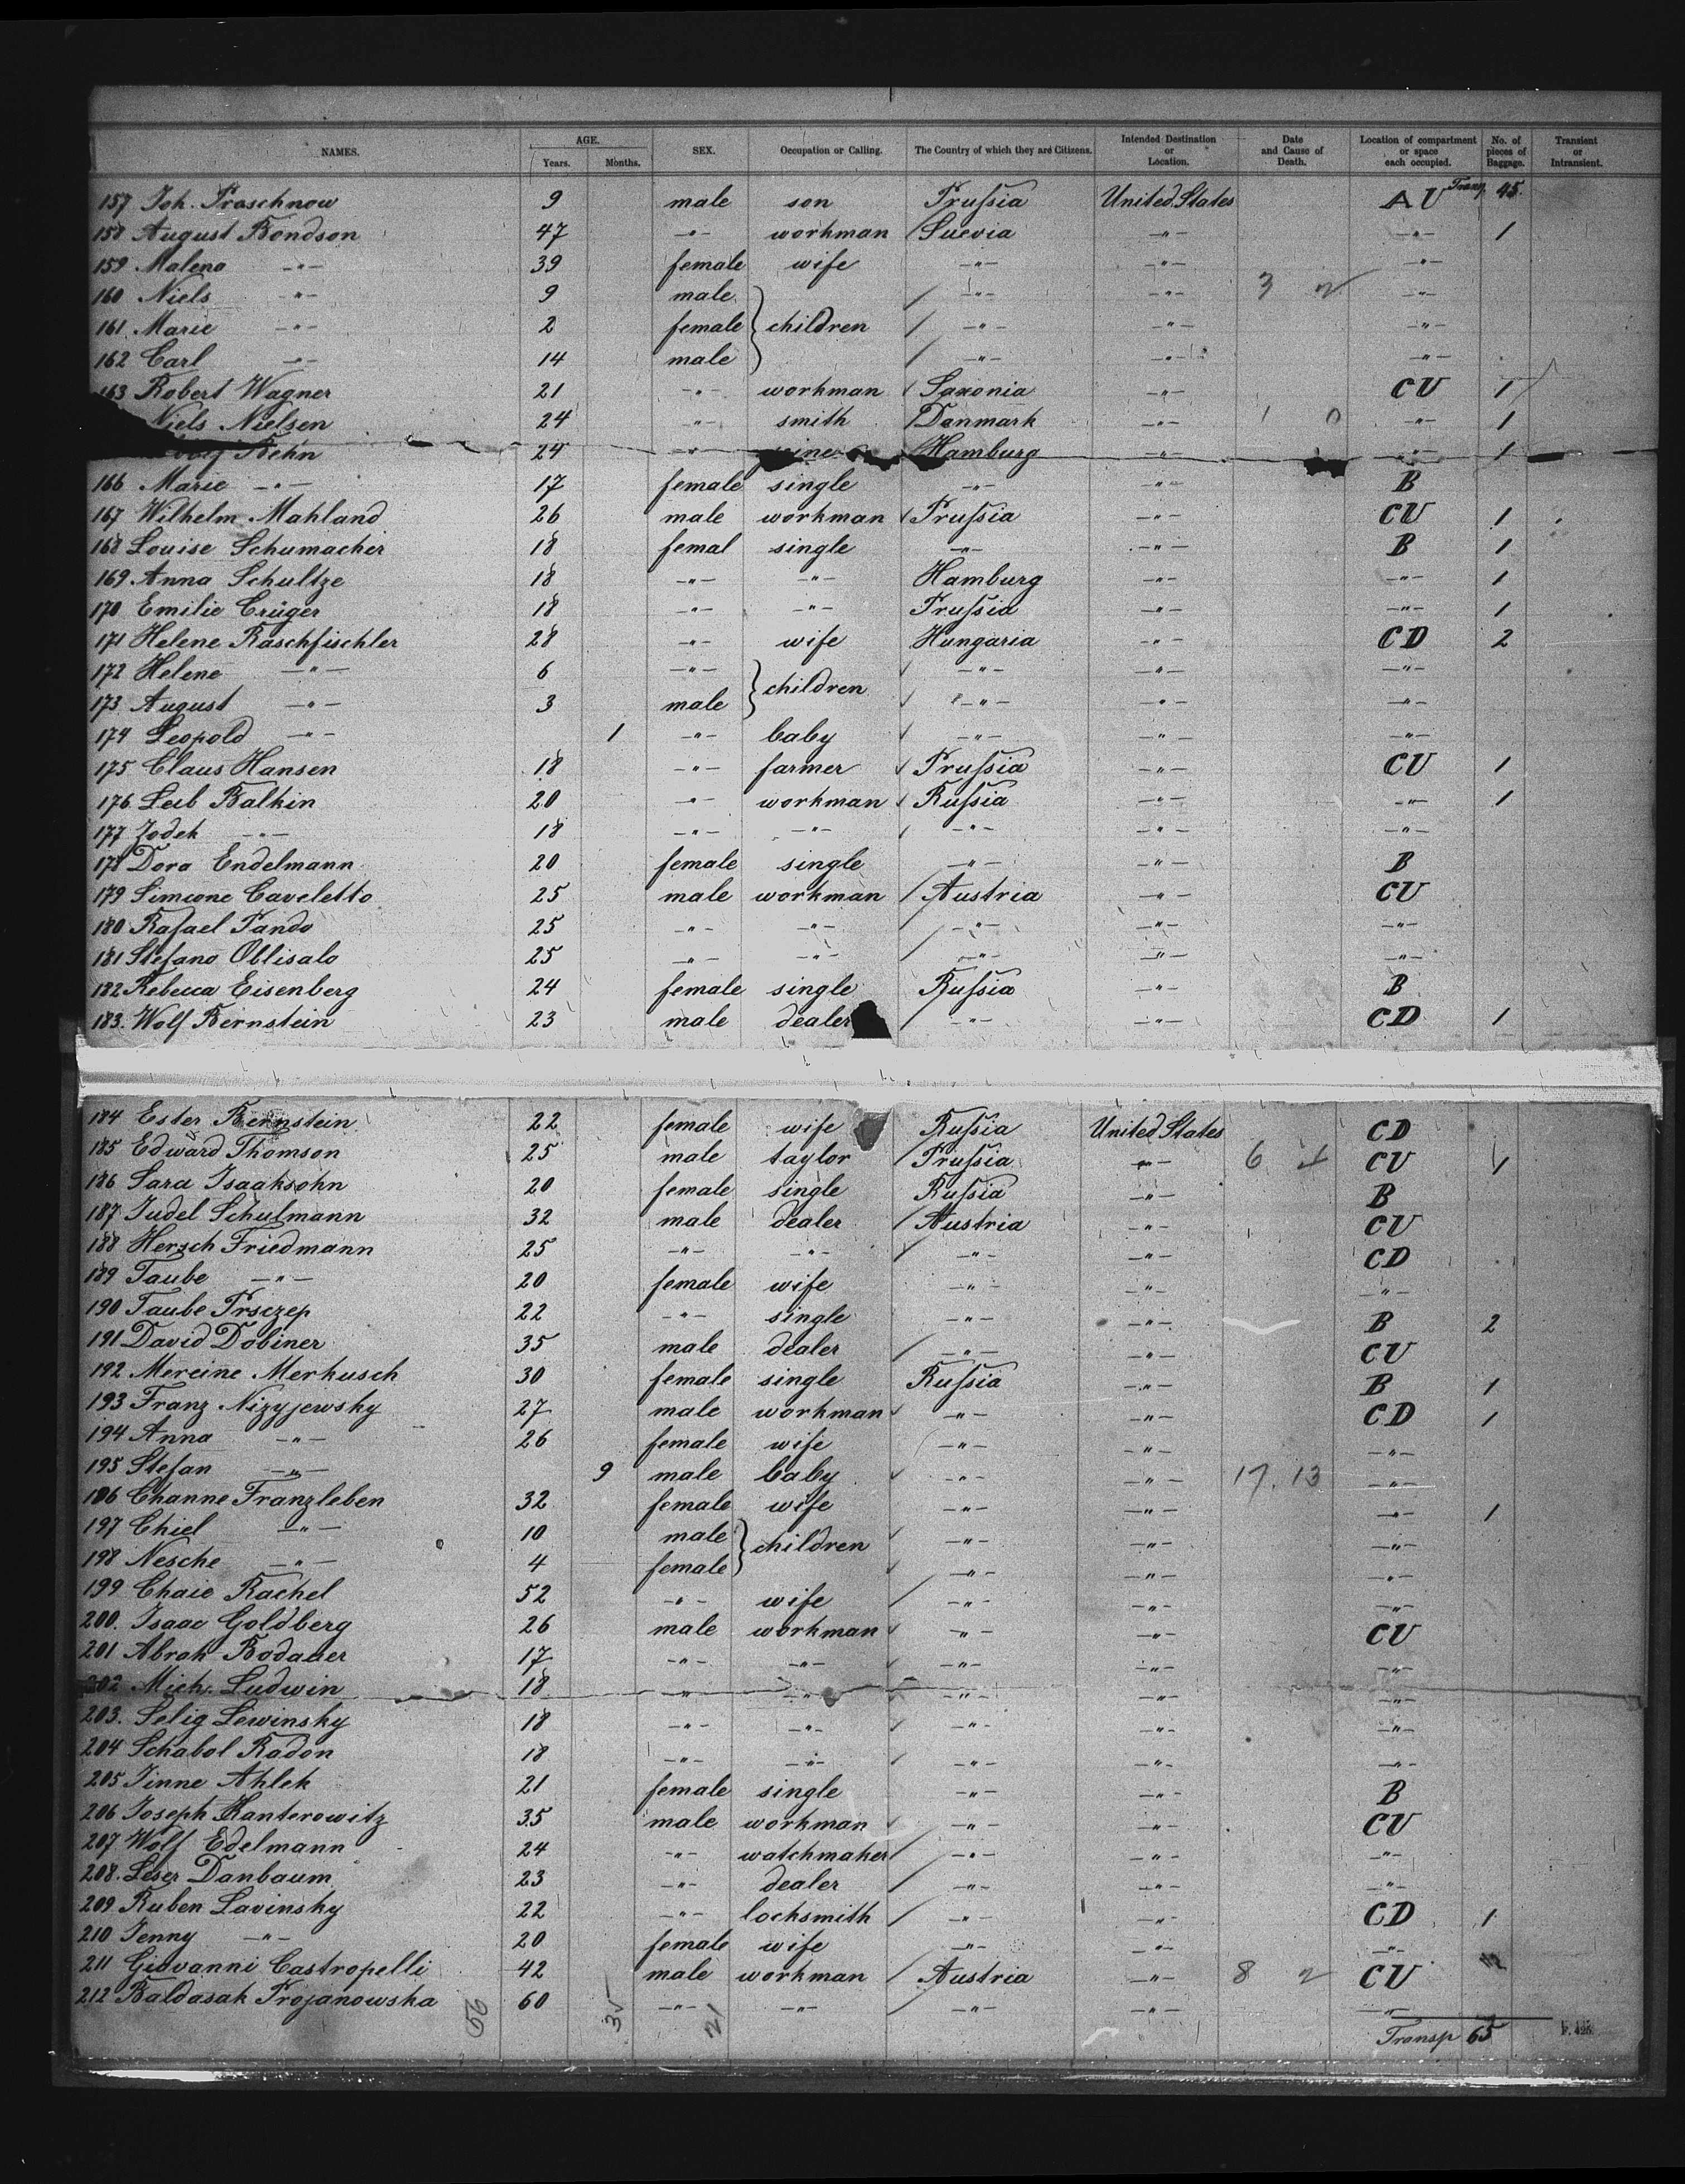 NAMES. AGE. SEX. Occupation or Calling. The Country of which they are Citizens. Intended Destination or Location. Date and Cause of Death. Location of compartment or space each occupied. No. of pieces of Baggage. Transient or Intransient.
Years. Months.
157 Joh. Praschnow 9 male son Prussia United States AU Transp 45.
158 August Bondson 47 -"- workman Suevia -"- -"- 1
159 Malena -"- 39 female wife -"- -"- -"-
160 Niels -"- 9 male -"- -"- 3 2 -"-
161 Marie -"- 2 female children -"- -"- -"-
162 Carl -"- 14 male -"- -"- -"-
163 Robert Wagner 21 -"- workman Saxonia -"- CU 1
Niels Nielsen 24 -"- smith Danmark -"- 1 0 -"- 1
Behn 24 -"- Hamburg -"- -"- 1
166 Marie -"- 17 female single -"- -"- B
167 Wilhelm Mahland 26 male workman Prussia -"- CU 1
168 Louise Schumacher 18 femal single -"- -"- B 1
169 Anna Schultze 18 -"- -"- Hamburg -"- -"- 1
170 Emilie Crüger 18 -"- -"- Prussia -"- -"- 1
171 Helene Raschfischler 28 -"- wife Hungaria -"- CD 2
172 Helene -"- 6 -"- -"- -"- -"-
173 August -"- 3 male children -"- -"- -"-
174 Leopold -"- 1 -"- baby -"- -"- -"-
175 Claus Hansen 18 -"- farmer Prussia -"- CU 1
176 Leib Balkin 20 -"- workman Russia -"- -"- 1
177 Jodek -"- 18 -"- -"- -"- -"- -"-
178 Dora Endelmann 20 female single -"- -"- B
179 Simeone Caveletto 25 male workman Austria -"- CU
180 Rafael Pando 25 -"- -"- -"- -"- -"-
181 Stefano Oblisalo 25 -"- -"- -"- -"- -"-
182 Rebecca Eisenberg 24 female single Russia -"- B
183. Wolf Bernstein 23 male dealer -"- -"- CD 1
184 Ester Bernstein 22 female wife Russia United States CD
185 Edward Thomson 25 male taylor Prussia -"- 6 4 CU 1
186 Sara Isaaksohn 20 female single Russia -"- B
187 Judel Schulmann 32 male dealer Austria -"- CU
188 Hersch Friedmann 25 -"- -"- -"- -"- CD
189 Taube -"- 20 female wife -"- -"- -"-
190 Taube Prsczep 22 -"- single -"- -"- B 2
191 David Dobiner 35 male dealer -"- -"- CU
192 Mereine Merkusch 30 female single Russia -"- B 1
193 Franz Nizyjewsky 27 male workman -"- -"- CD 1
194 Anna -"- 26 female wife -"- -"- -"-
195 Stefan -"- 9 male baby -"- -"- 17. 13 -"-
196 Channe Franzleben 32 female wife -"- -"- -"- 1
197 Chiel -"- 10 male children -"- -"- -"-
198 Nesche -"- 4 female -"- -"- -"-
199 Chaie Rachel 52 -"- wife -"- -"- -"-
200. Isaac Goldberg 26 male workman -"- -"- CU
201 Abrah Bodauer 17 -"- -"- -"- -"- -"-
202 Mich. Ludwin 18 -"- -"- -"- -"- -"-
203. Selig Lewinsky 18 -"- -"- -"- -"- -"-
204 Schabol Radon 18 -"- -"- -"- -"- -"-
205 Jinne Ahlek 21 female single -"- -"- B
206 Joseph Kanterowitz 35 male workman -"- -"- CU
207 Wolf Edelmann 24 -"- watchmaker -"- -"- -"-
208. Leser Danbaum 23 -"- dealer -"- -"- -"-
209 Ruben Lavinsky 22 -"- locksmith -"- -"- CD 1
210 Jenny -"- 20 female wife -"- -"- -"-
211 Giovanni Castropelli 42 male workman Austria -"- 8 2 CU
212 Baldasak Trojanowska 60 -"- -"- -"- -"- -"-
56 35 21 Transp 65 F. 425.